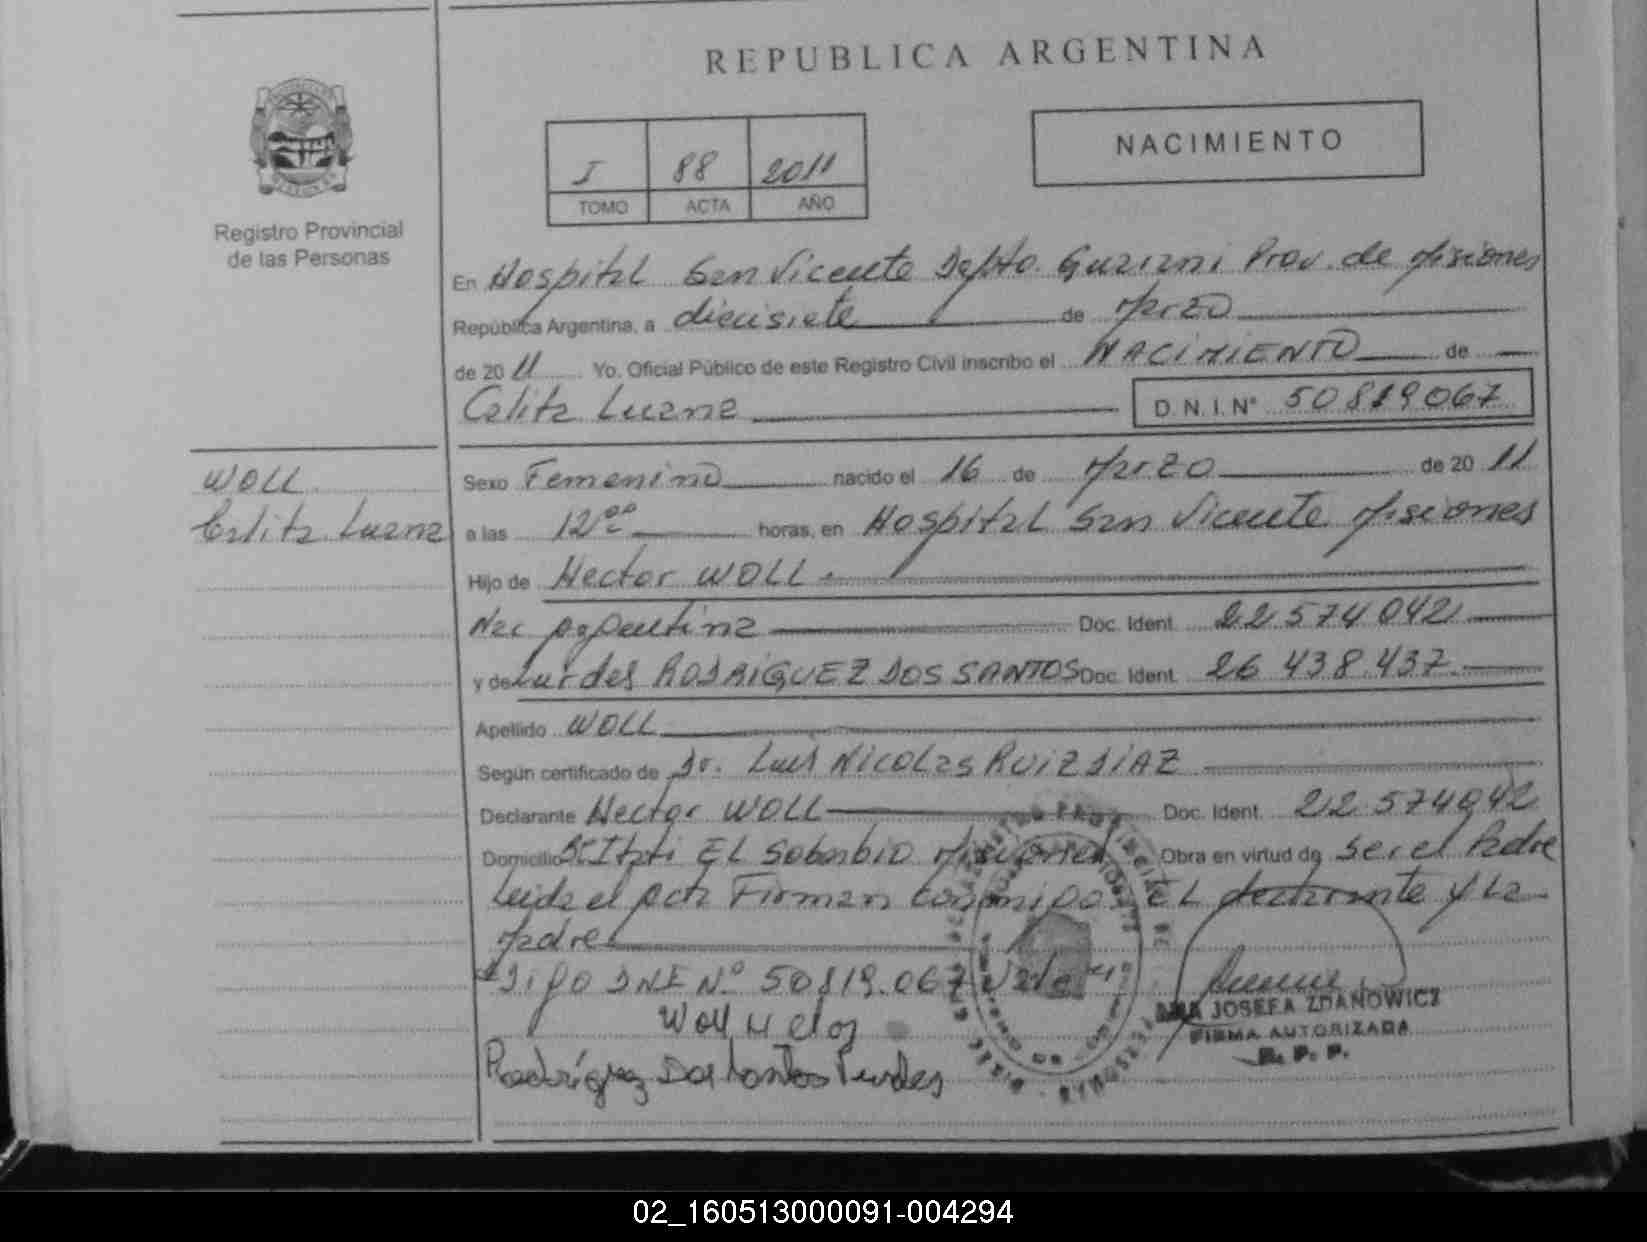 REPUBLICA ARGENTINA
NACIMIENTO
I 88 2011
TOMO ACTA AÑO
Registro Provincial
de las Personas
En Hospital San Vicente Depto. Guarani Prov. de Misiones
República Argentina, a diecisiete de Marzo
de 2011 Yo. Oficial Público de este Registro Civil inscribo el NACIMIENTO de
Calita Luana D.N.I.Nº 50819067
WOLL
Calita Luana
Sexo Femenino nacido el 16 de Marzo de 2011
a las 12 00 horas, en Hospital San Vicente Misiones
Hijo de Hector WOLL
Nac Argentina Doc. Ident. 22.574.042
y de Lurdes RODRIGUEZ DOS SANTOS Doc. Ident. 26.438.437
Apellido WOLL
Según certificado de Dr. Luis Nicolas RUIZ DIAZ
Declarante Hector WOLL Doc. Ident. 22.574.042
Domicilio El Soberbio Misiones Obra en virtud de ser el Padre
Leida el acta Firman conmigo EL declarante y La
Madre
"Digo DNI Nº 50819.067 Vale"
Woll H
Rodríguez Dos Santos Lurdes
JOSEFA ZDANOWICZ
FIRMA AUTORIZADA
R. P. P.
02_160513000091-004294